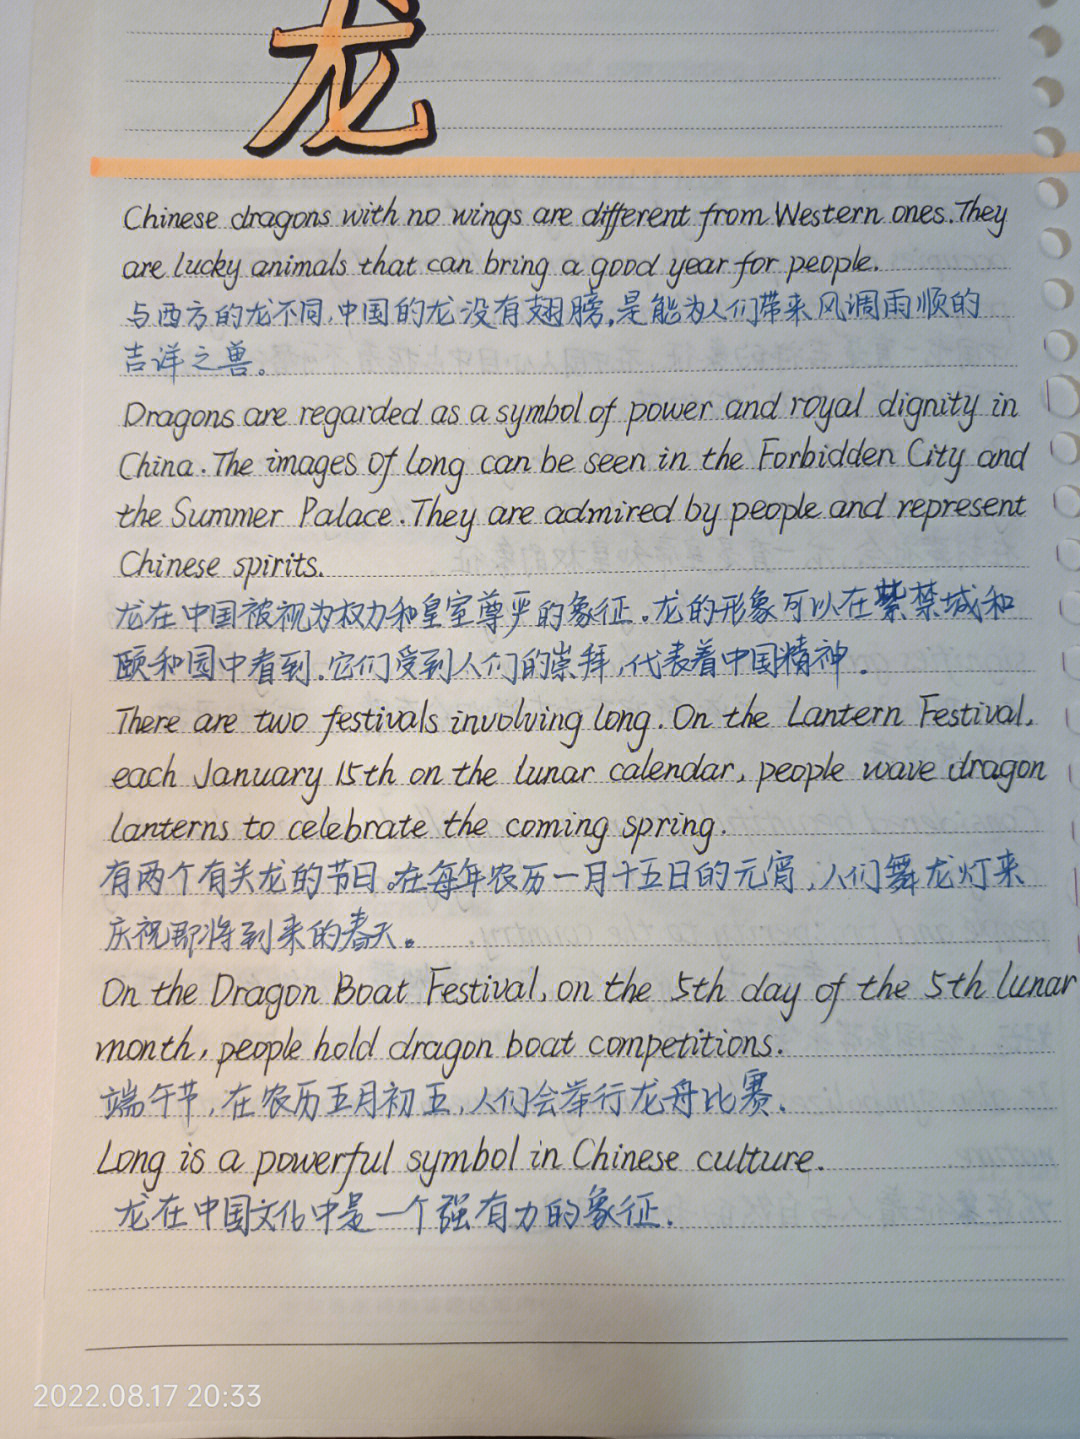 龙
Chinese dragons with no wings are different from Western ones. They
are lucky animals that can bring a good year for people.
与西方的龙不同,中国的龙没有翅膀,是能为人们带来风调雨顺的
吉祥之兽。
Dragons are regarded as a symbol of power and royal dignity in
China. The images of long can be seen in the Forbidden City and
the Summer Palace. They are admired by people and represent
Chinese spirits.
龙在中国被视为权力和皇室尊严的象征。龙的形象可以在紫禁城和
颐和园中看到.它们受到人们的崇拜,代表着中国精神.
There are two festivals involving long. On the Lantern Festival,
each January 15th on the lunar calendar, people wave dragon
lanterns to celebrate the coming spring.
有两个有关龙的节日。在每年农历一月十五日的元宵,人们舞龙灯来
庆祝即将到来的春天。
On the Dragon Boat Festival, on the 5th day of the 5th lunar
month, people hold dragon boat competitions.
端午节,在农历五月初五,人们会举行龙舟比赛.
Long is a powerful symbol in Chinese culture.
龙在中国文化中是一个强有力的象征.
2022.08.17 20:33